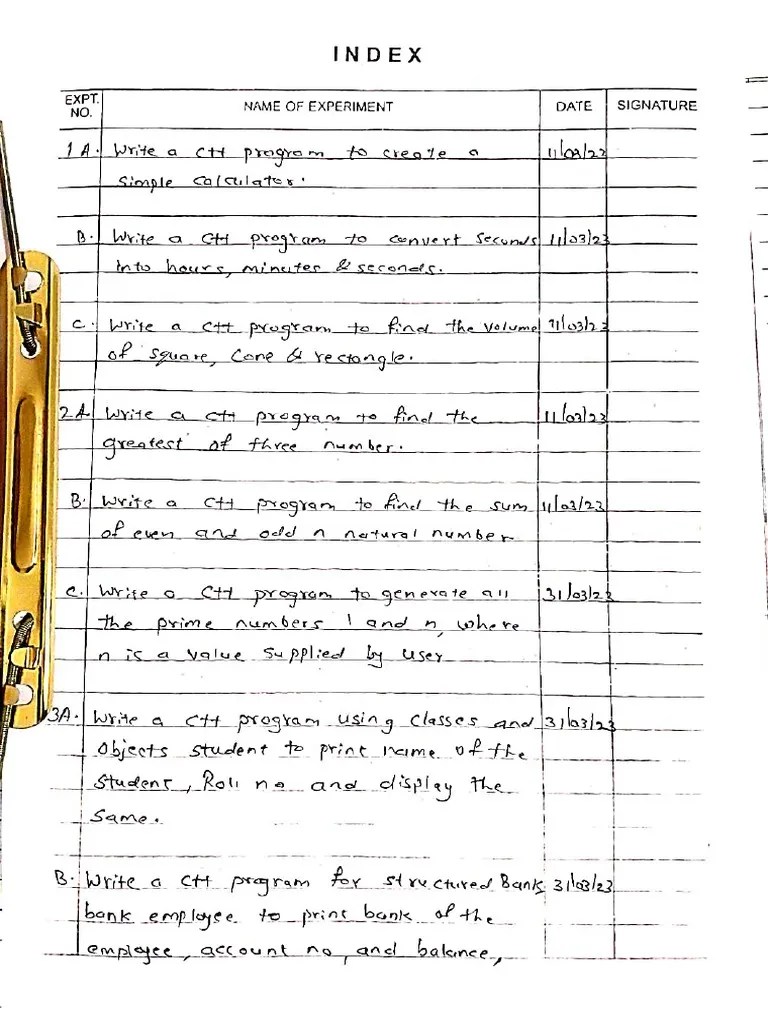 INDEX
EXPT. NO. NAME OF EXPERIMENT DATE SIGNATURE
1 A. Write a C++ program to create a 11/03/23
simple calculator.
B. Write a C++ program to convert seconds 11/03/23
into hours, minutes & seconds.
C. Write a C++ program to find the volume 11/03/23
of square, cone & rectangle.
2 A. Write a C++ program to find the 11/03/23
greatest of three number.
B. Write a C++ program to find the sum 11/03/23
of even and odd n natural number
C. Write a C++ program to generate all 31/03/23
the prime numbers 1 and n, where
n is a value supplied by user
3A. Write a C++ program using classes and 31/03/23
Objects student to print name of the
student, Roll no and display the
same.
B. Write a C++ program for structured Bank 31/03/23
bank employee to print bank of the
employee, account no, and balance,